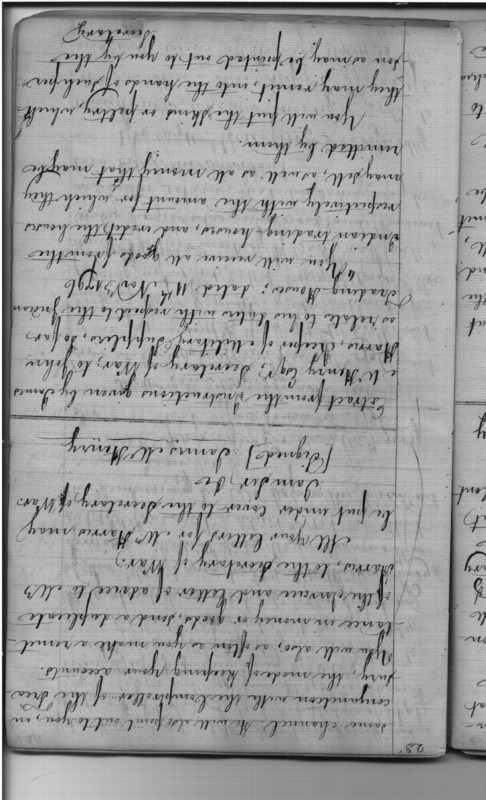 23
same channel. He will also point out to you, in
conjunction with the Comptroller of the Trea
sury, the mode of keeping your accounts.
You will also, as often as you make a remit-
tance in money or goods, send a duplicate
of the Invoice and letter of advice to Mr
Harris, to the Secretary of War;
All your letters for Mr Harris may
be put under cover to the Secretary of War.
I am Sir &c
[Signed] James McHenry
Extract from the instructions given by James
McHenry Esqr, Secretary of War, to John
Harris, Keeper of Military Supplies, so far
as relate to his duties with respect to the Indian
Trading-Houses; dated 11th Novr 1796
"You will receive all goods from the
Indian trading-houses, and credit the houses
respectively with the amount for which they
may sell, as well as all money that may be
remitted by them.
You will put the skins or peltry, which
they may remit, into the hands of such per
son as may be pointed out to you by the
Secretary